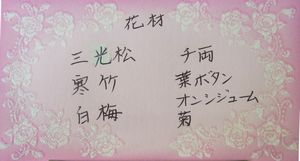 花材
三光松
寒竹
白梅
千両
葉ボタン
オンシジューム
菊